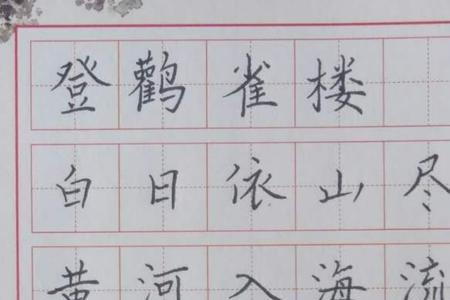 登鹳雀楼
白日依山尽
黄河入海流